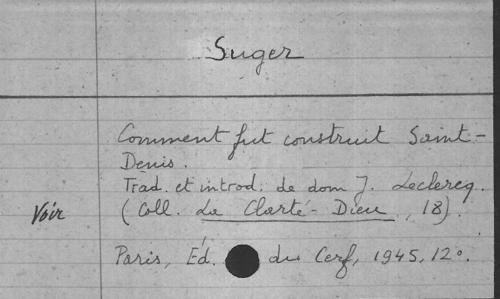 Suger
Comment fut construit Saint-
Denis.
Trad. et introd. de dom J. Leclercq.
Voir (Coll. La Clarté-Dieu, 18).
Paris, Éd. du Cerf, 1945, 12º.